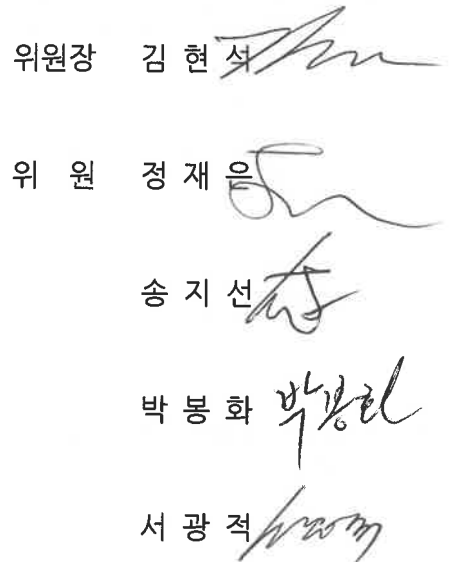 위원장 김 현 석
위 원 정 재 은
송 지 선
박 봉 화 박봉화
서 광 적